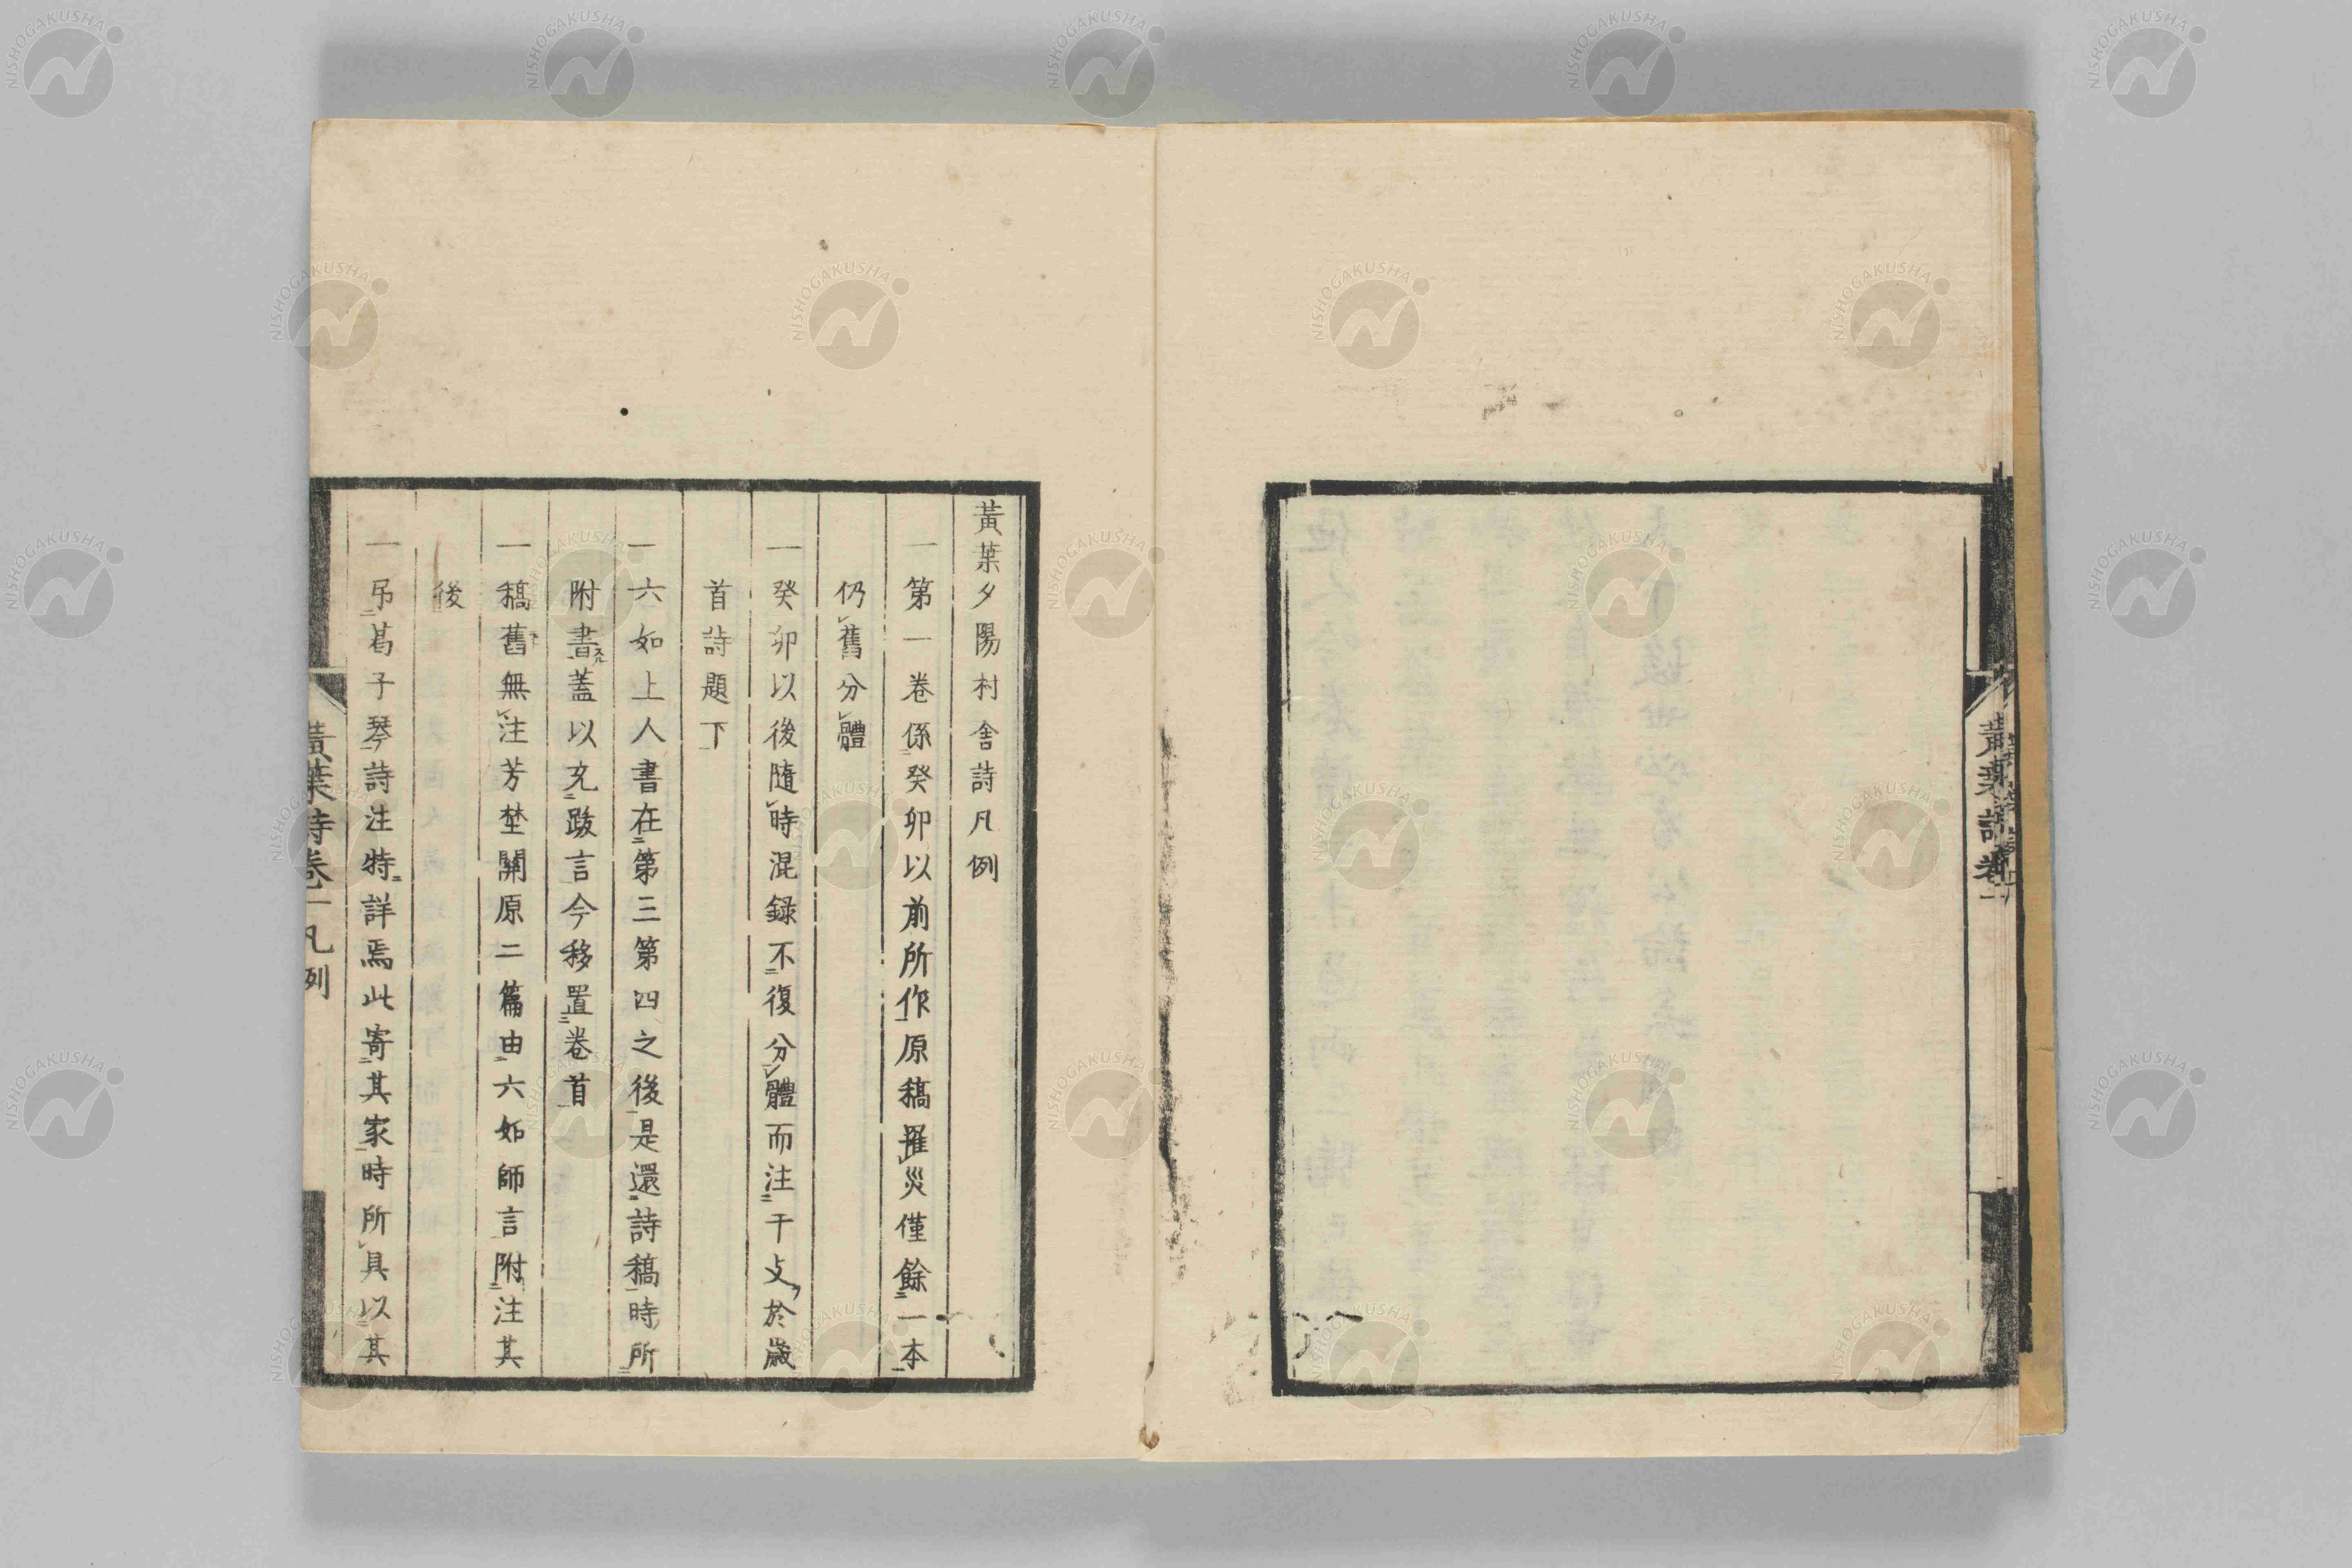 黃葉夕陽村舍詩凡例
一第一卷係癸卯以前所作原稿罹災僅餘一本
仍舊分體
一癸卯以後隨時混錄不復分體而注干支於歲
首詩題下
一六如上人書在第三第四之後是還詩稿時所
附書蓋以充跋言今移置卷首
一稿舊無注芳埜關原二篇由六如師言附注其
後
一吊葛子琴詩注特詳焉此寄其家時所具以其
黃葉詩卷一凡例
黃葉詩卷一
NISHOGAKUSHA